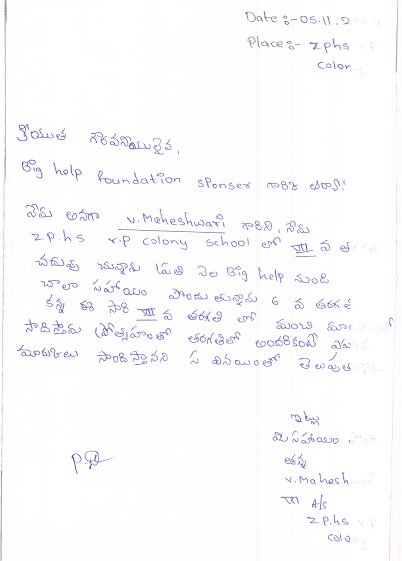 Date :- 05.11.2
Place :- zphs
colony
శ్రీయుత గౌరవనీయులైన,
Big help foundation sponser గారికి
నేను అనగా v. Maheshwari గారిని, నేను
Z P.hs r.p colony school లో VII వ త
చదువు చున్నాను ప్రతి నెల Big help నుండి
చాలా సహాయం పొందు తున్నాను 6 వ తరగతి
కన్న ఈ సారి VII వ తరగతి లో మంచి మా
సాదిస్తాను ప్రోత్సాహంతో తరగతిలో అందరికంటే
మార్కులు సాందిస్తానని వినయంతో తెలుపుత
ఇట్లు
మీ సహాయం
v. Mahesh
VII A/s
Z P.hs r.p
colony